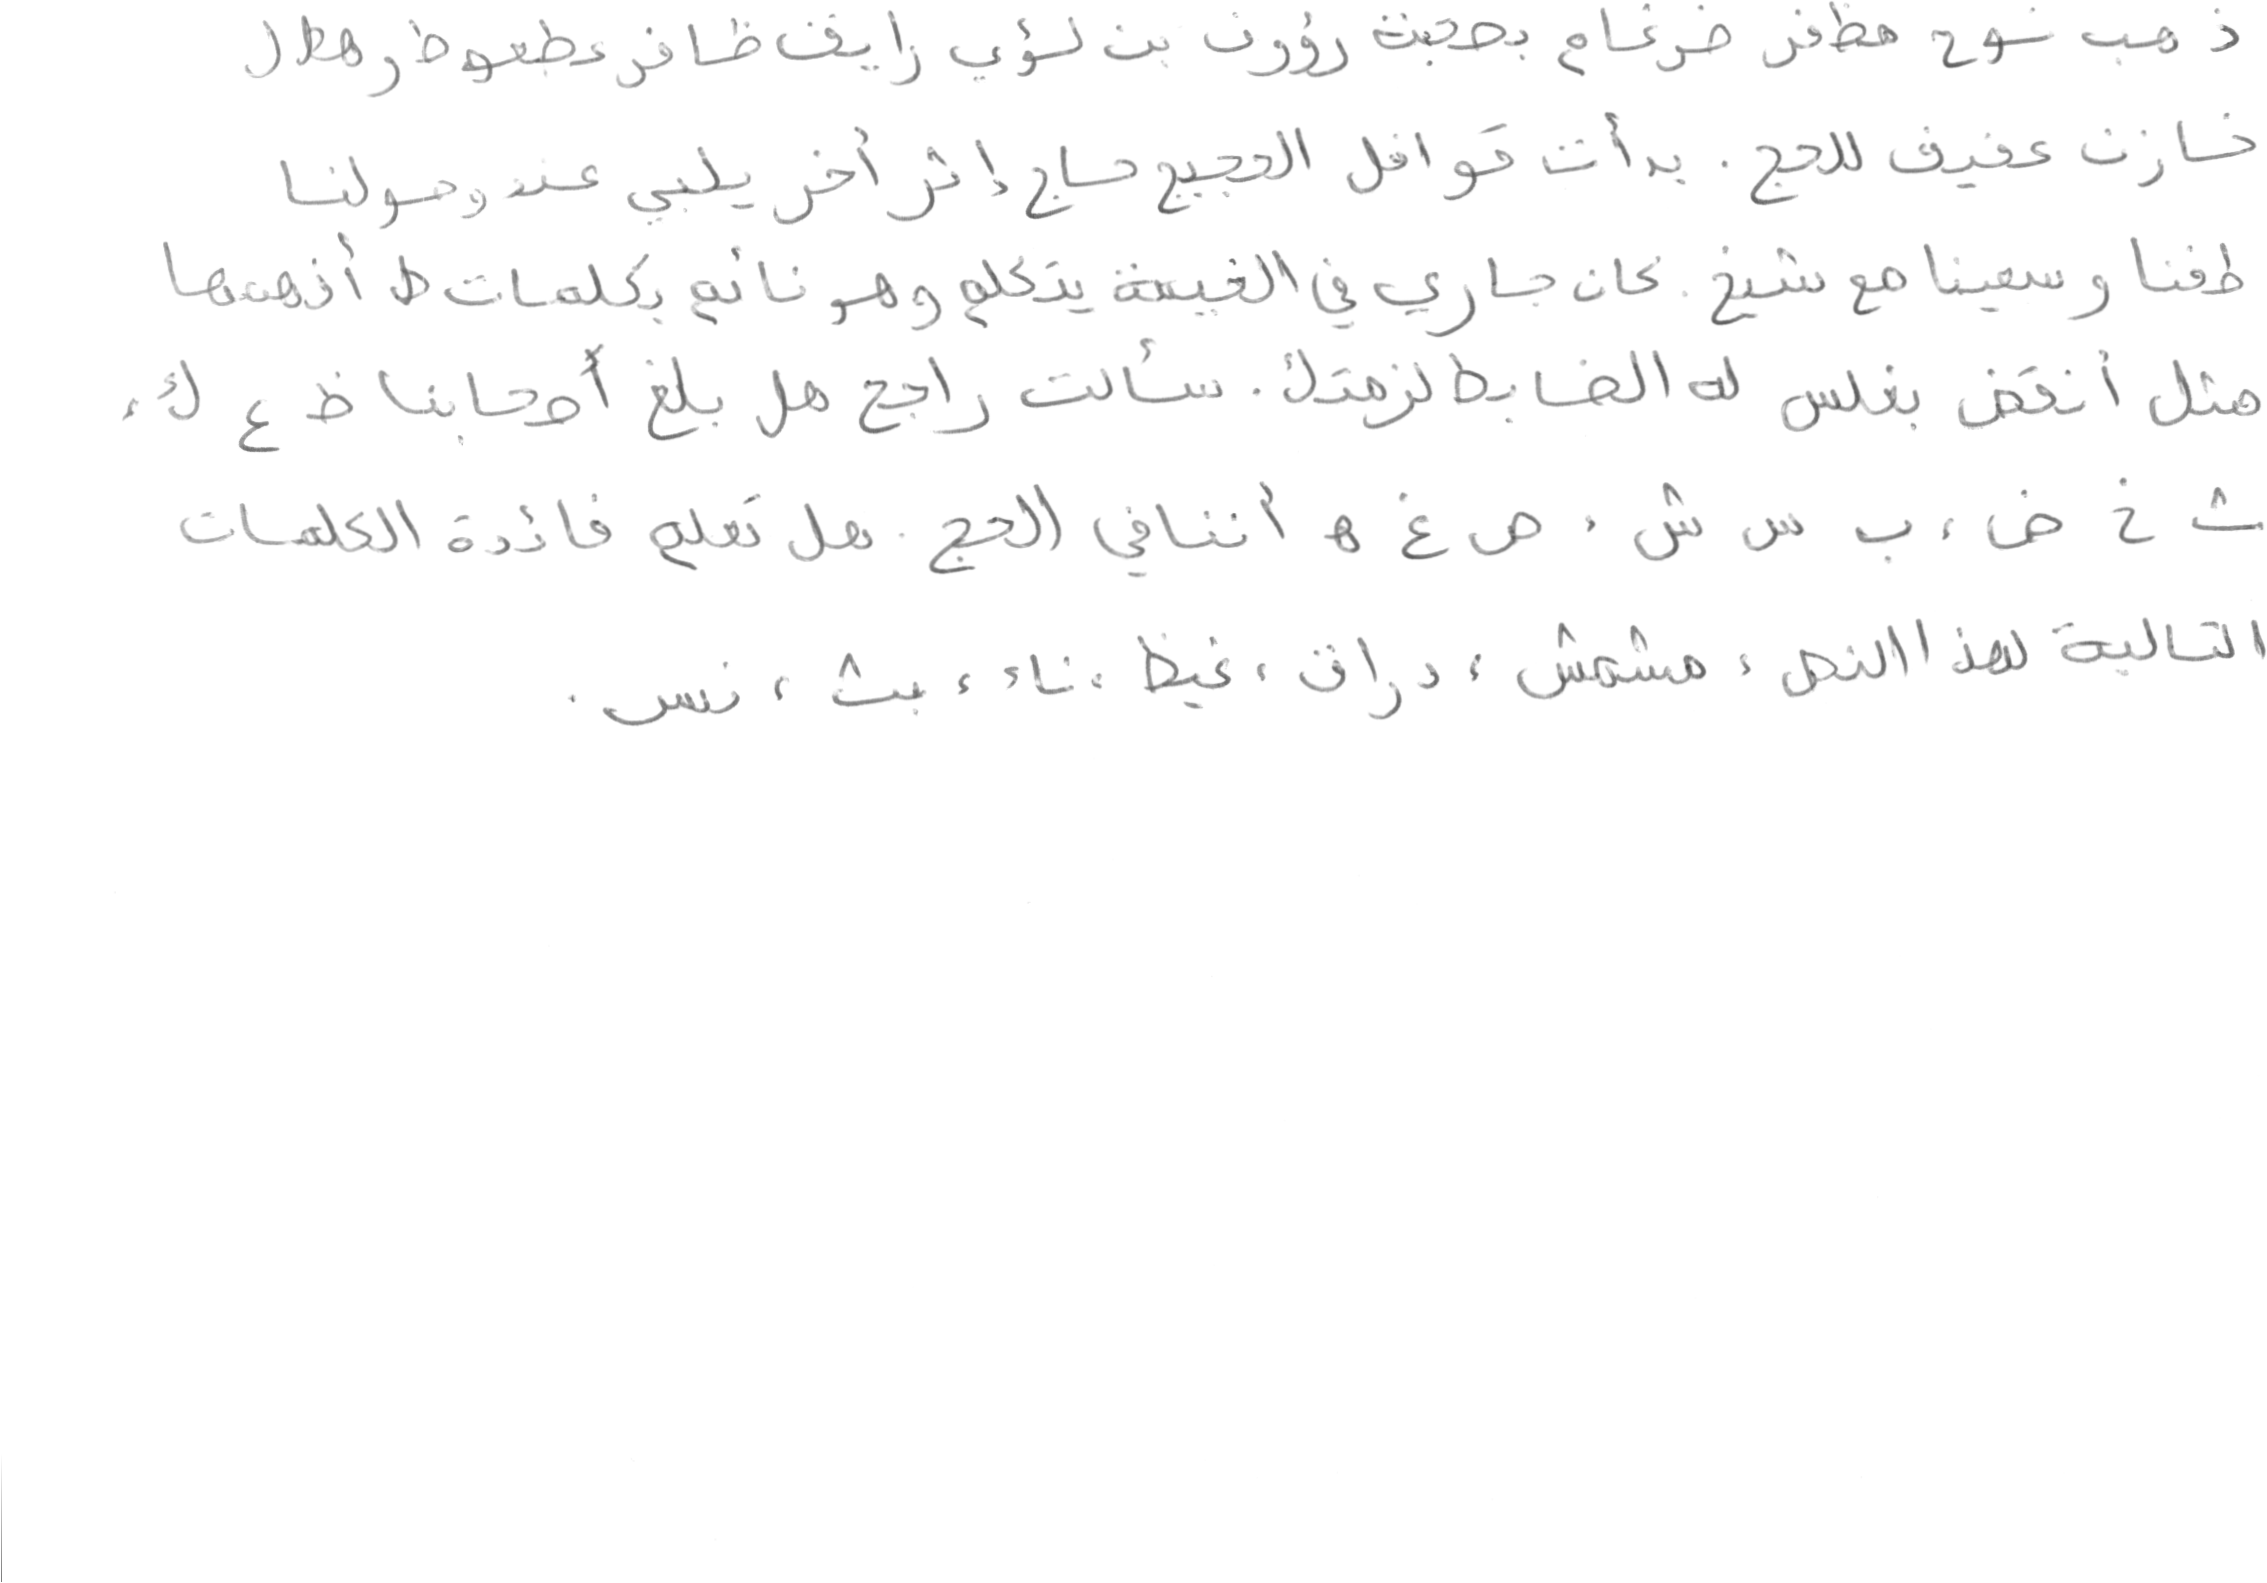 ذهب نوح مظفر ضرغام بصحبة رؤوف بن لؤي رايف ظافر عطعوط و هلال
خازن عفيف للحج . بدأت قوافل الحجيج حاج إثر أخر يلبي عند وصولنا
طفنا وسعينا مع شيخ . كان جاري في الخيمة يتكلم وهو نائم بكلمات لا أفهمها
مثل أنقض بغلس له الضابط لزمتك . سألت راجح هل بلغ أصحابنا ظ ع ك ،
ث خ ض ، ب س ش ، ص غ ه أننا في الحج . هل تعلم فائدة الكلمات
التالية لهذا النص ، مشمش ، دراق ، غيظ ، ناء ، بث ، نس .